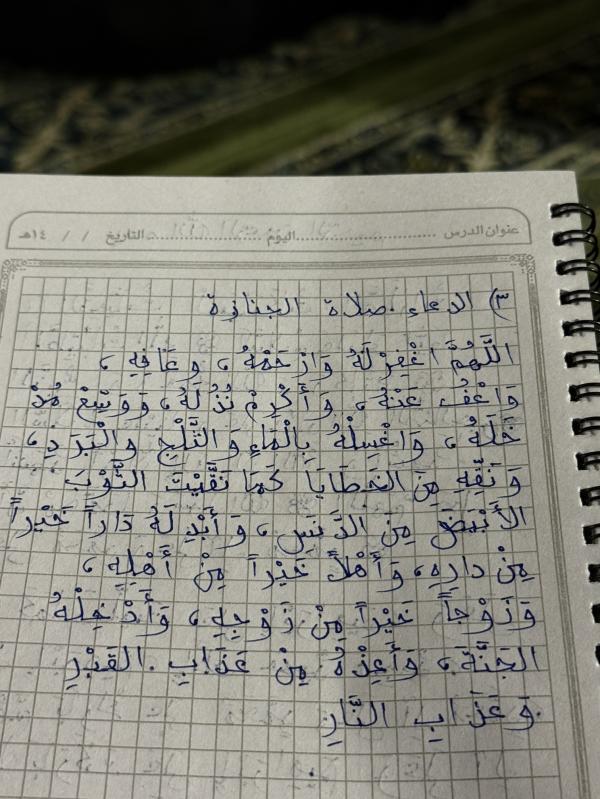 عنوان الدرس ........................ اليوم ........................ التاريخ / / ١٤هـ
٣) الدعاء صلاة الجنازة
اللَّهُمَّ اغْفِرْ لَهُ وَارْحَمْهُ، وعَافِهِ،
وَاعْفُ عَنْهُ، وَأَكْرِمْ نُزُلَهُ، وَوَسِّعْ مُدْ
خَلَهُ، وَاغْسِلْهُ بِالْمَاءِ وَالثَّلْجِ والْبَرَدِ،
وَنَقِّهِ مِنَ الخَطَايَا كَمَا نَقَّيْتَ الثَّوْبَ
الأَبْيَضَ مِنَ الدَّنَسِ، وَأَبْدِلَهُ دَاراً خَيْراً
مِنْ دارِهِ، وَأَهْلاً خَيْراً مِنْ أَهْلِهِ،
وَزَوْجاً خَيْراً مِنْ زَوْجِهِ، وَأَدْخِلْهُ
الجَنَّةَ، وَأَعِذْهُ مِنْ عَذَابِ القَبْرِ
وَعَذَابِ النَّارِ